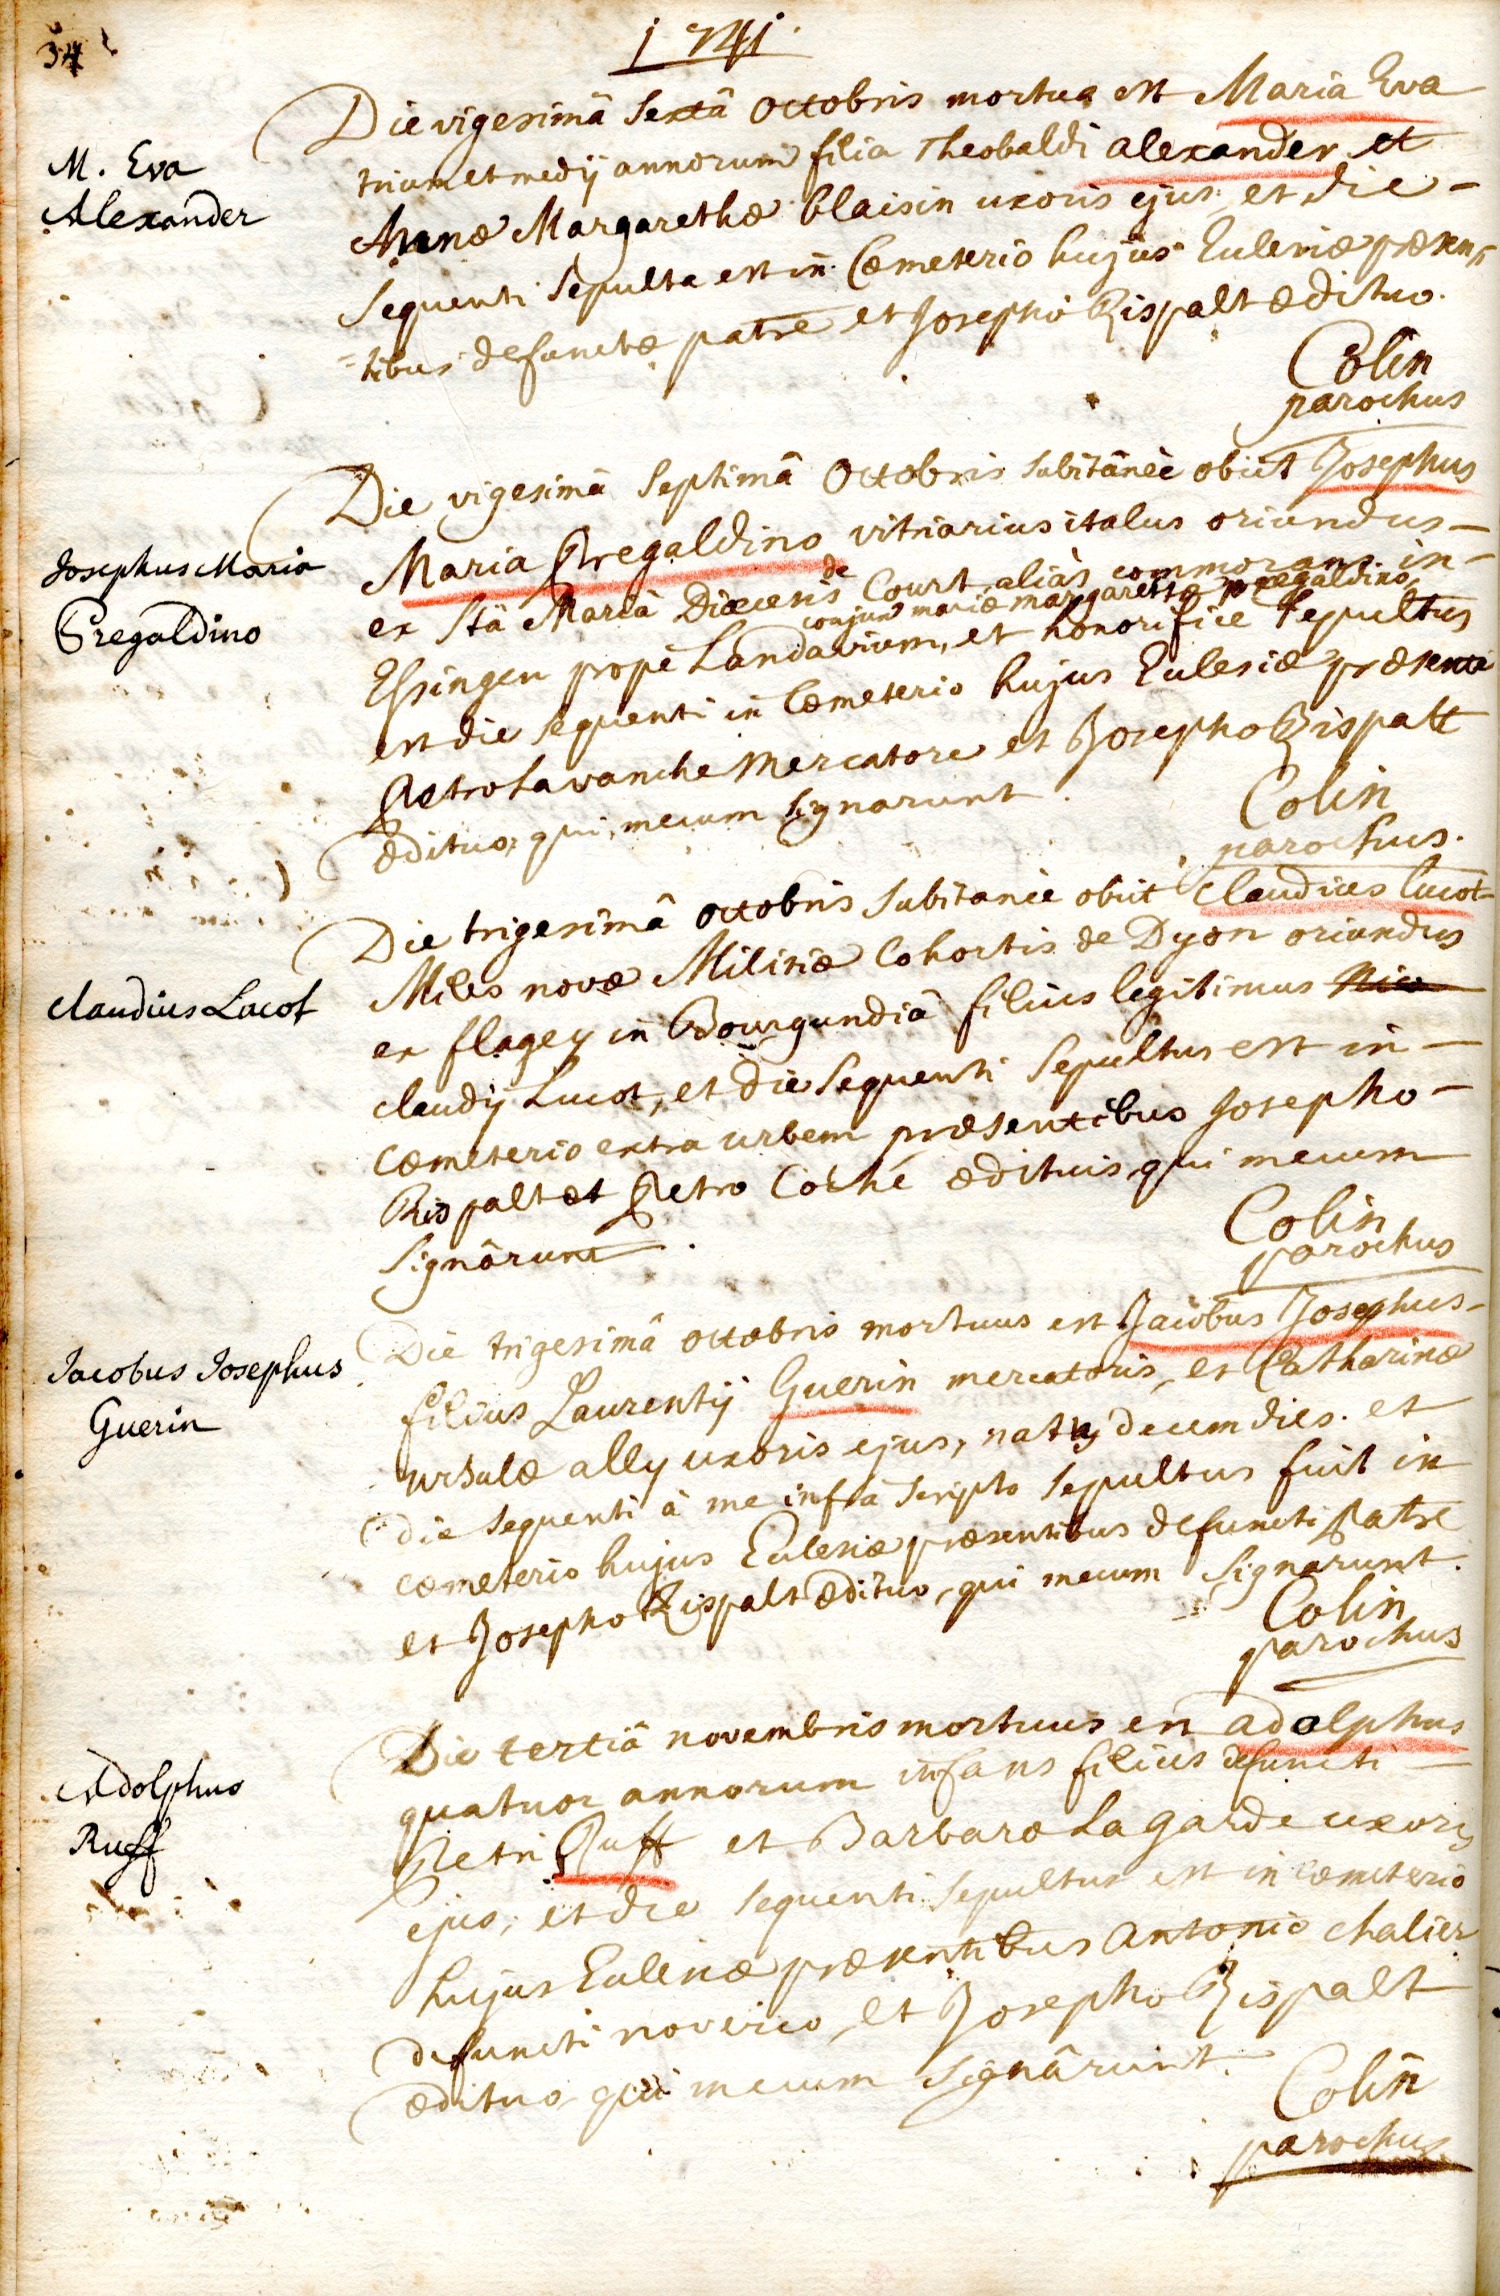 34
1741.
M. Eva
Alexander
Die vigesimâ Sextâ Octobris mortua est Maria Eva
trium et medij annorum filia Theobaldi alexander et
Annæ Margarethæ blaisin uxoris ejus, et die -
sequenti Sepulta est in Cæmeterio hujus Ecclesiæ præsen-
=tibus defunctæ patre et Josepho Rispalt ædituo.
Colin
parochus
Josephus Maria
Pregaldino
Die vigesimâ Septimâ Octobris subitaneè obiit Josephus
Maria Pregaldino vitriarius italus oriundus -
ex Stâ Mariâ Diœcesis de Court, aliàs commorans in -
conjux mariæ margaretta pregaldino
Essingen propè Landavium, et honorifice Sepultus
est die sequenti in Cæmeterio hujus Ecclesiæ præsente
Petro Lavanche Mercatore et Josepho Rispalt
ædituo, qui mecum signarunt.
Colin
parochus.
claudius Lucot
Die trigesimâ octobris Subitaneè obiit Claudius lucot
Miles novæ Militiæ Cohortis de Dyon oriundus
ex flagey in Bourgundiâ filius legitimus Nico
claudij Lucot, et die sequenti Sepultus est in -
cæmeterio extra urbem præsentibus Josepho -
Rispalt et Petro Coché ædituis, qui mecum
signârunt.
Colin
parochus
Jacobus Josephus
Guerin
Die trigesimâ octobris mortuus est Jacobus Josephus -
filius Laurentij Guerin mercatoris, et Catharinæ
ursulæ ally uxoris ejus, natus decem dies. et
die sequenti à me infrà scripto sepultus fuit in
cæmeterio hujus Ecclesiæ præsentibus defuncti patre
et Josepho Rispalt ædituo, qui mecum signarunt.
Colin
parochus
Adolphus
Ruff
Die tertiâ novembris mortuus est adolphus
quatuor annorum infans filius defuncti -
Petri Ruff et Barbaræ Lagarde uxoris
ejus, et die sequenti Sepultus est in cæmeterio
hujus Ecclesiæ præsentibus Antonio chalier
defuncti noverco, et Josepho Rispalt
ædituo qui mecum signârunt.
Colin
parochus